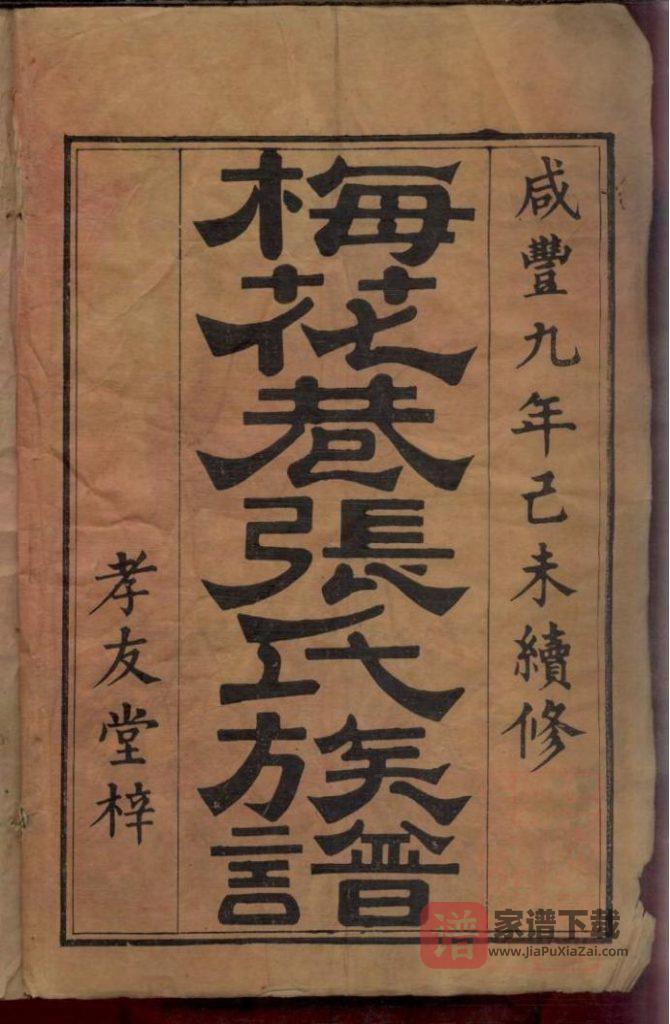 咸豐九年己未續修
梅花巷張氏族譜
孝友堂梓
谱 家谱下载
www.JiaPuXiaZai.com